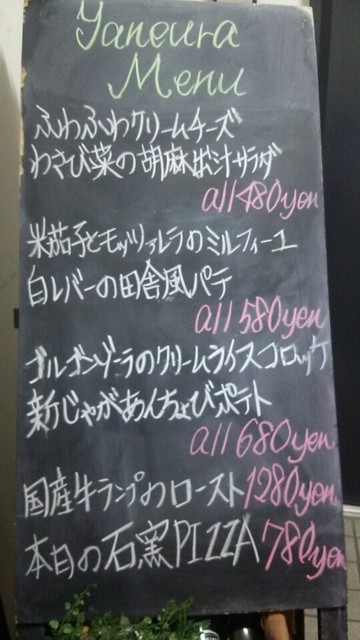 Yaneura
Menu
ふわふわクリームチーズ
わさび菜の胡麻出汁サラダ
all 480yen
米茄子とモッツァレラのミルフィーユ
白レバーの田舎風パテ
all 580yen
ゴルゴンゾーラのクリームライスコロッケ
新じゃがあんちょびポテト
all 680yen
国産牛ランプのロースト1280yen
本日の石窯PIZZA 780yen